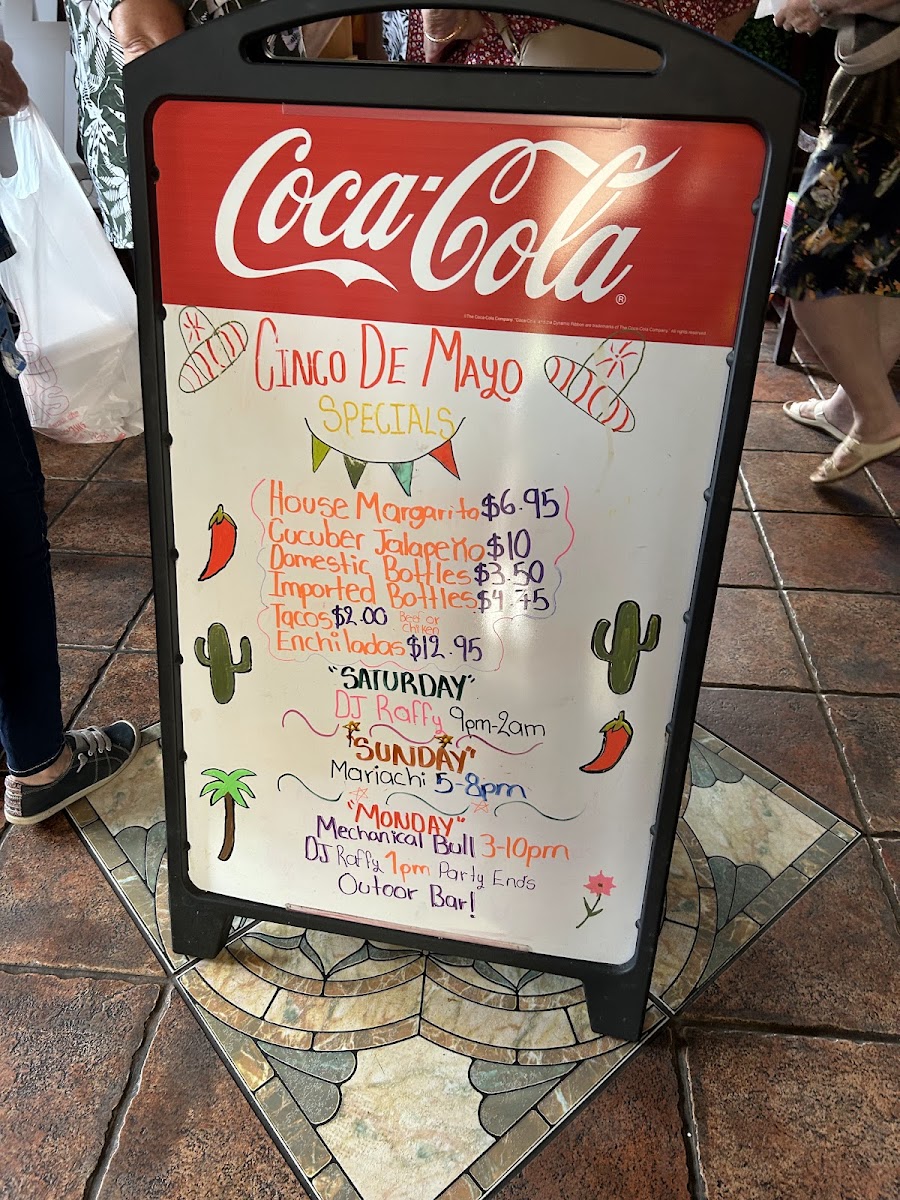 Coca-Cola®
CINCO DE MAYO
SPECIALS
House Margarita $6.95
Cucuber Jalapeño $10
Domestic Bottles $3.50
Imported Bottles $4.75
Tacos $2.00 Beef or Chiken
Enchiladas $12.95
"SATURDAY"
DJ Raffy 9pm-2am
"SUNDAY"
Mariachi 5-8pm
"MONDAY"
Mechanical Bull 3-10pm
DJ Raffy 1pm Party Ends
Outoor Bar!